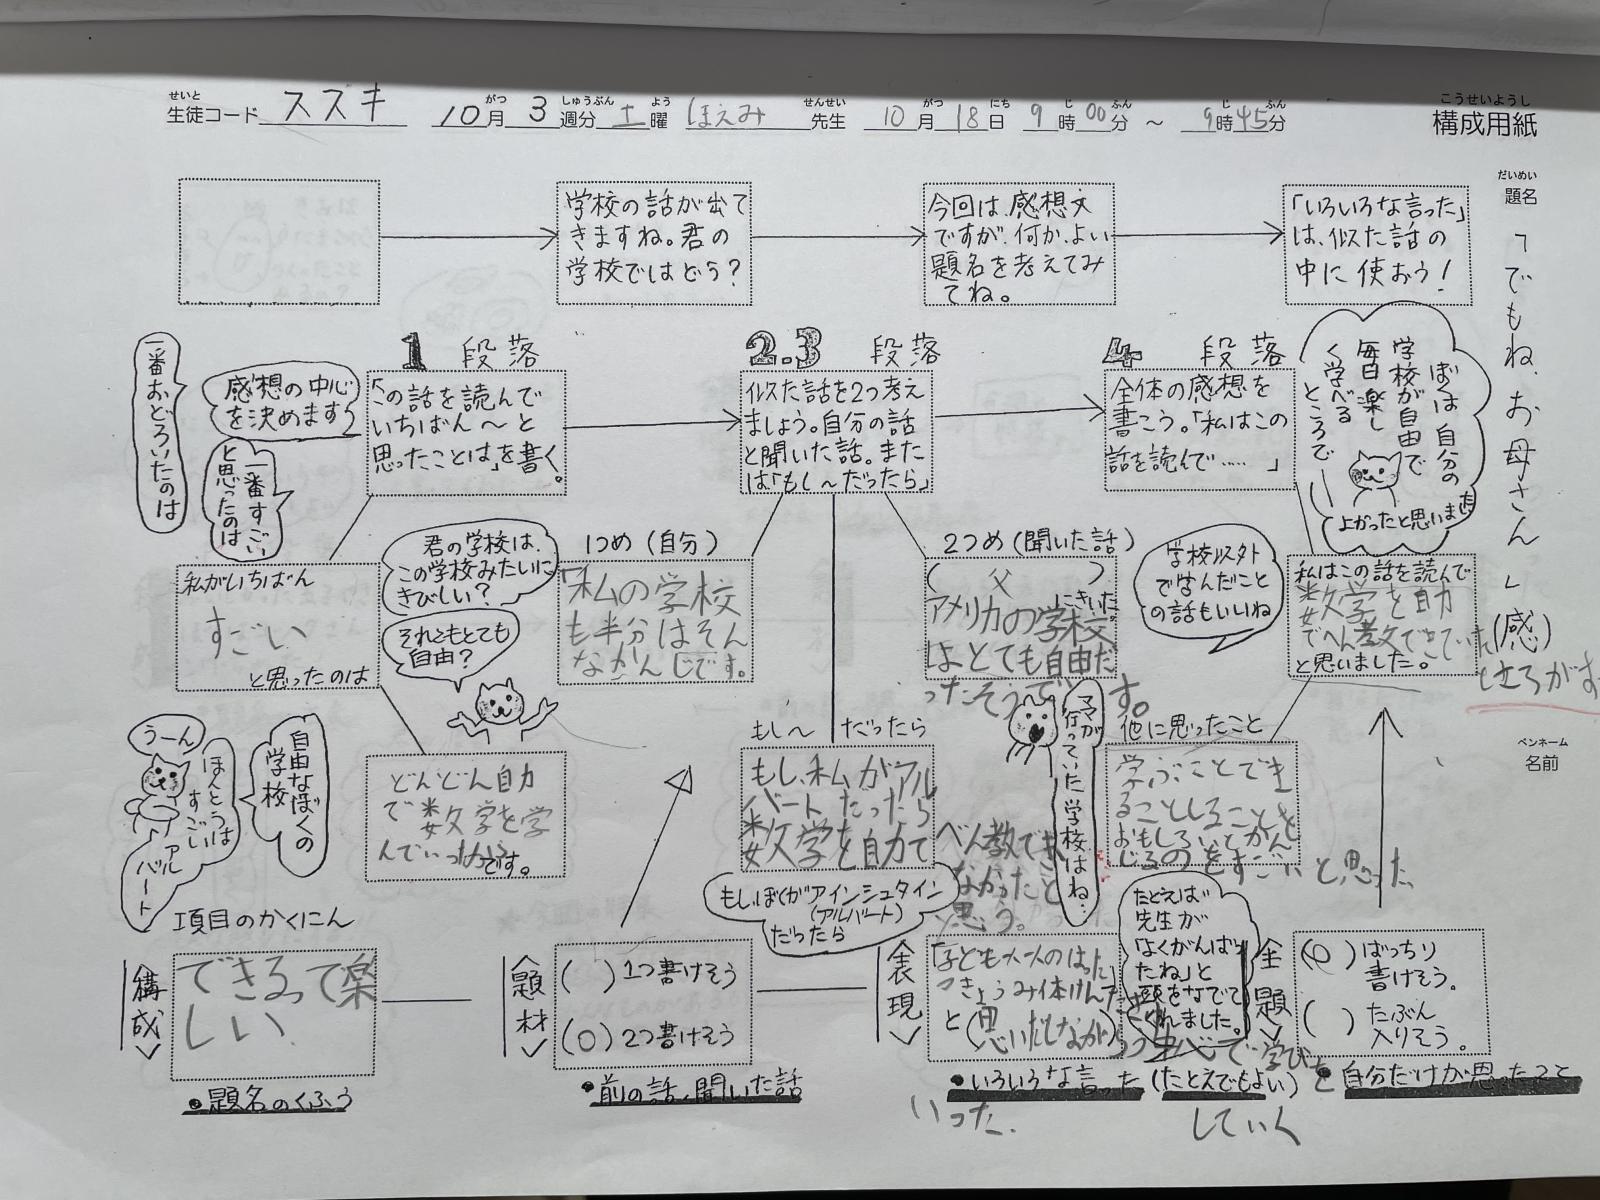 せいと
生徒コード スズキ 10月 3週分 土曜 ほえみ 先生 10月 18日 9時 00分 〜 9時 45分
こうせいようし
構成用紙
だいめい
題名
「でもね、お母さん」(感)
ペンネーム
名前
学校の話が出て
きますね。君の
学校ではどう?
今回は、感想文
ですが、何か、よい
題名を考えてみ
てね。
「いろいろな言った」
は、似た話の
中に使おう!
1 段落
2.3 段落
4 段落
一番おどろいたのは
感想の中心
を決めます
一番すごい
と思ったのは
「この話を読んで
いちばん〜と
思ったことは」を書く。
似た話を2つ考え
ましょう。自分の話
と聞いた話。また
は「もし〜だったら」
全体の感想を
書こう。「私はこの
話を読んで……」
ぼくは自分の
学校が自由で
毎日楽し
く学べる
ところで
よかったと思いました
私がいちばん
すごい
と思ったのは
君の学校は、
この学校みたいに
きびしい?
それともとても
自由?
1つめ(自分)
「私の学校
も半分はそん
なかんじです。
2つめ(聞いた話)
( 父 )
にきいた。
アメリカの学校
はとても自由だ
ったそうです。
学校以外
で学んだこと
の話もいいね
私はこの話を読んで
数学を自力
でべん教できていた
と思いました。
うーん
ほんとうは
すごい
アルバート
自由なぼくの
学校
どんどん自力
で数学を学
んでいったです。
もし〜だったら
もし、私がアル
バートだったら
数学を自力で
べん教でき
なかったと
思う。
もしぼくがアインシュタイン
(アルバート)
だったら
ママが
行っていた学校はね…
他に思ったこと
学ぶことでき
ることしることを
おもしろいとかん
じるのをすごいと思った
項目のかくにん
<構成>
できるって楽
しい
●題名のくふう
<題材>
( )1つ書けそう
(○)2つ書けそう
●前の話、聞いた話
<表現>
と(思いだしながら)
たとえば
先生が
「よくがんばっ
たね」と
頭をなでて
くれました。
●いろいろな言った(たとえでもよい)
いった.
していく
<主題>
ばっちり
書けそう。
( )たぶん
入りそう。
●自分だけが思ったこと